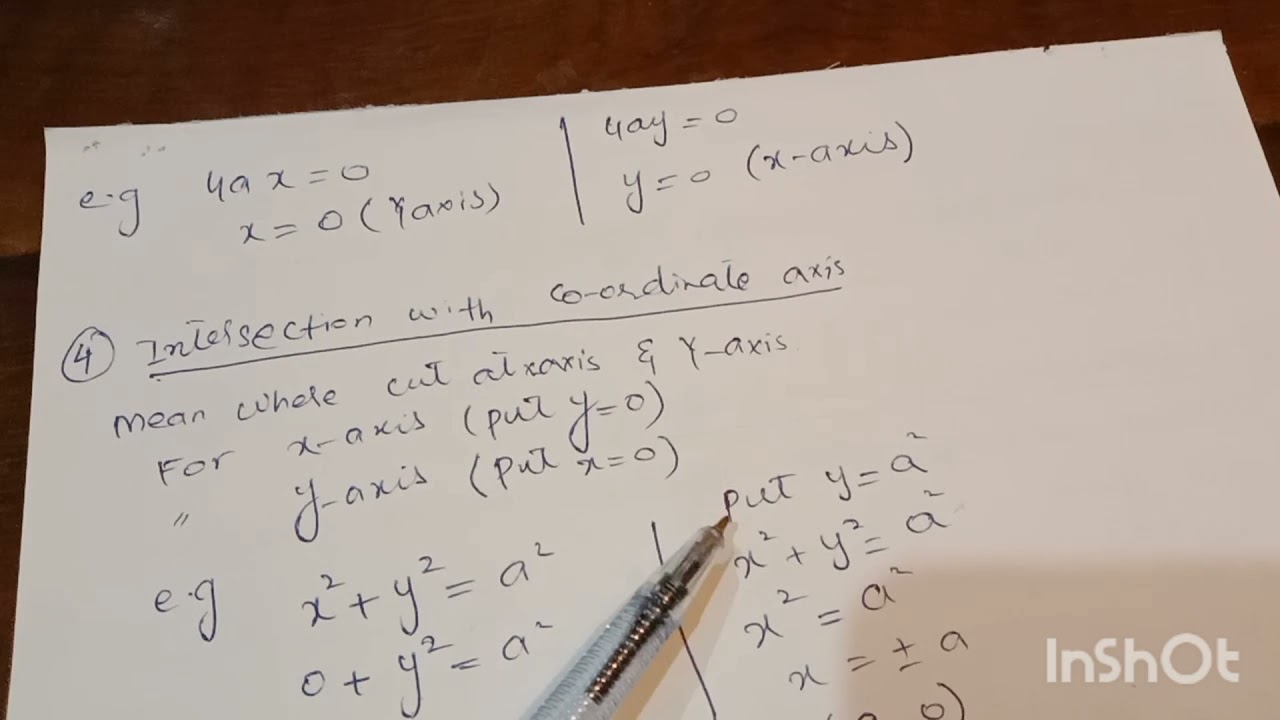 e.g 4a x = 0
x = 0 (Y axis)
4ay = 0
y = 0 (x-axis)
④ Intersection with Co-ordinate axis
Mean where cut at x axis & Y-axis
For x-axis (put y=0)
" y-axis (put x=0)
e.g x² + y² = a²
0 + y² = a²
put y = a²
x² + y² = a²
x² = a²
x = ± a
0)
InShOt